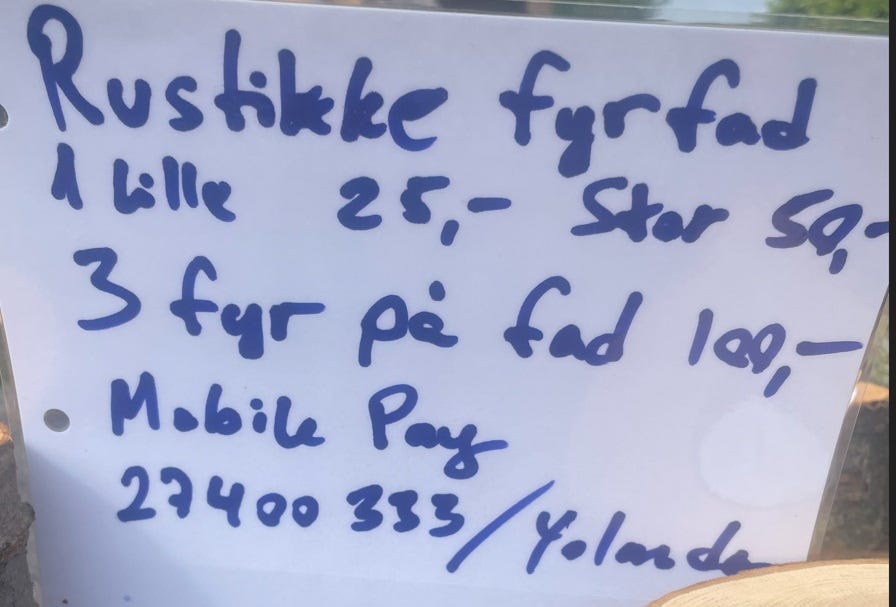 Rustikke fyrfad
1 lille 25,- Stor 50,-
3 fyr på fad 100,-
Mobile Pay
27400333/Yolanda